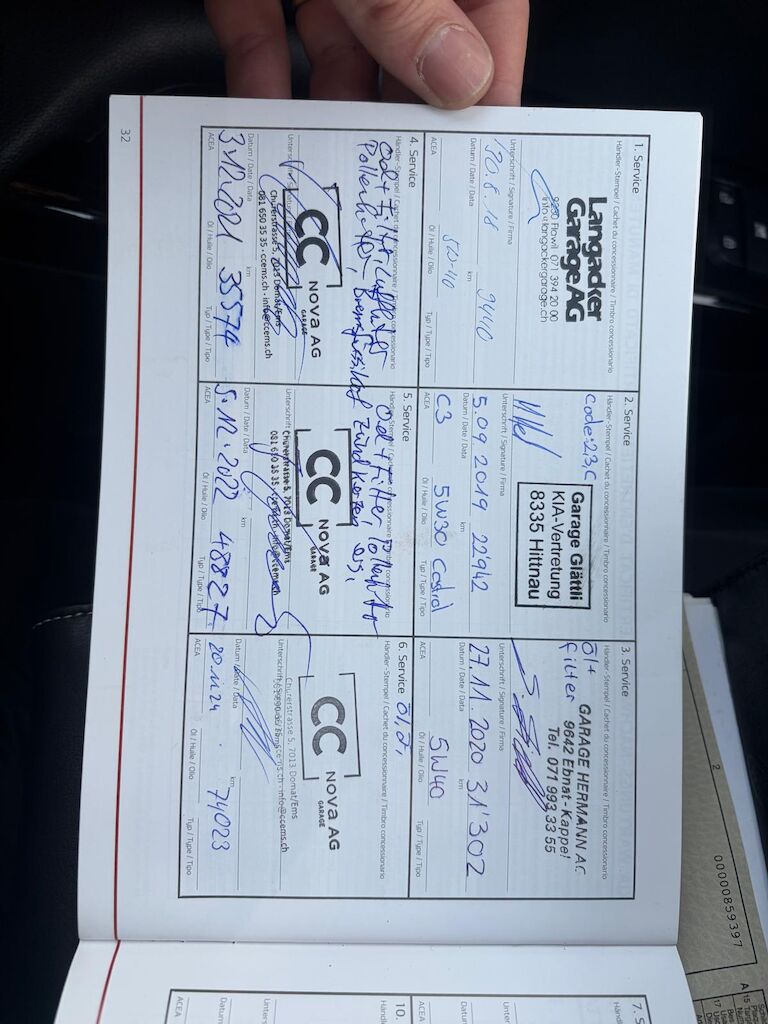 1. Service
Händler-Stempel / Cachet du concessionnaire / Timbro concessionario
Langacker
Garage AG
9230 Flawil 071 394 20 00
info@langackergarage.ch
Unterschrift / Signature / Firma
30.8.18 9440
Datum / Date / Data km
5W-40
ACEA Öl / Huile / Olio Typ / Type / Tipo
2. Service
Händler-Stempel / Cachet du concessionnaire / Timbro concessionario
Code: 2,3,C
Garage Glättli
KIA-Vertretung
8335 Hittnau
Unterschrift / Signature / Firma
5.09 2019 22'942
Datum / Date / Data km
C3 5W30 Castrol
ACEA Öl / Huile / Olio Typ / Type / Tipo
3. Service
Händler-Stempel / Cachet du concessionnaire / Timbro concessionario
Öl+
filter
GARAGE HERMANN AG
9642 Ebnat-Kappel
Tel. 071 993 33 55
Unterschrift / Signature / Firma
27.11.2020 31'302
Datum / Date / Data km
5W40
ACEA Öl / Huile / Olio Typ / Type / Tipo
4. Service
Händler-Stempel / Cachet du concessionnaire / Timbro concessionario
Luftfilter
Pollenfilter, Bremsflüssikeit Zündkerzen
CC
NOVA AG
GARAGE
Churerstrasse 5, 7013 Domat/Ems
081 650 35 35 · ccems.ch · info@ccems.ch
Unterschrift / Signature / Firma
Datum / Date / Data km
3.12.2021 35574
ACEA Öl / Huile / Olio Typ / Type / Tipo
5. Service
Händler-Stempel / Cachet du concessionnaire / Timbro concessionario
CC
NOVA AG
GARAGE
Churerstrasse 5, 7013 Domat/Ems
081 650 35 35 · ccems.ch · info@ccems.ch
Unterschrift
Datum / Date / Data km
5.12.2022 48827
ACEA Öl / Huile / Olio Typ / Type / Tipo
6. Service
Händler-Stempel / Cachet du concessionnaire / Timbro concessionario
CC
NOVA AG
GARAGE
Churerstrasse 5, 7013 Domat/Ems
info@ccems.ch
Unterschrift
Datum / Date / Data km
20.11.24 74023
ACEA Öl / Huile / Olio Typ / Type / Tipo
32
7. S
10.
Datum
ACEA
2
00000859397